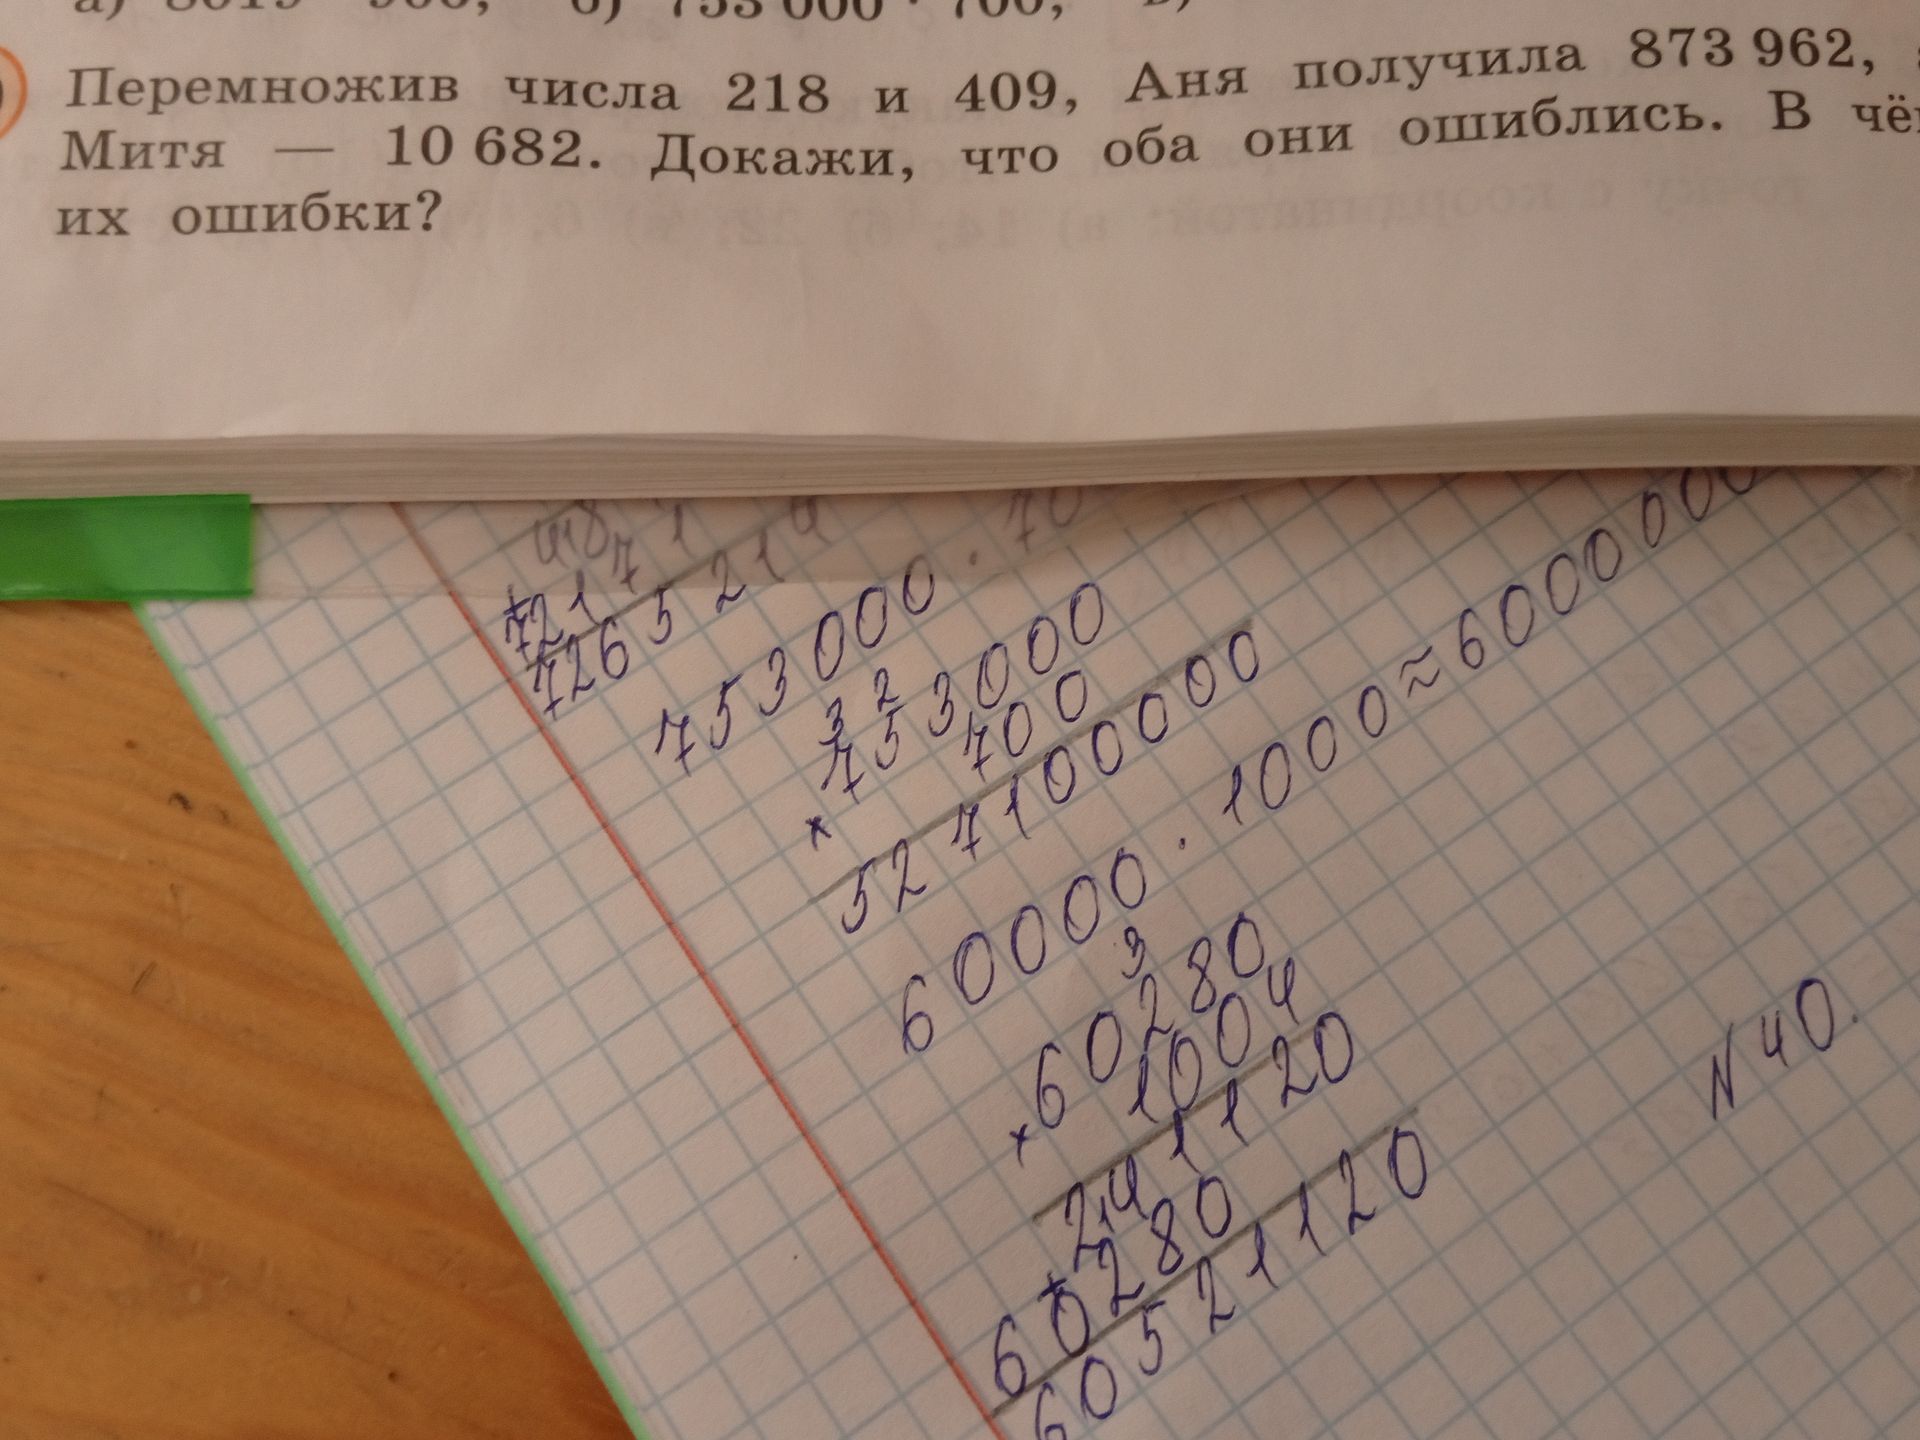 753 000 · 700;
Перемножив числа 218 и 409, Аня получила 873 962,
Митя — 10 682. Докажи, что оба они ошиблись. В чём
их ошибки?
7 1
7217
7265214
753000 · 70
3 2
753000
× 700
527100000
60000 · 1000 ≈ 6000000
3
60280
× 1004
241120
+
60280
60521120
N 40.